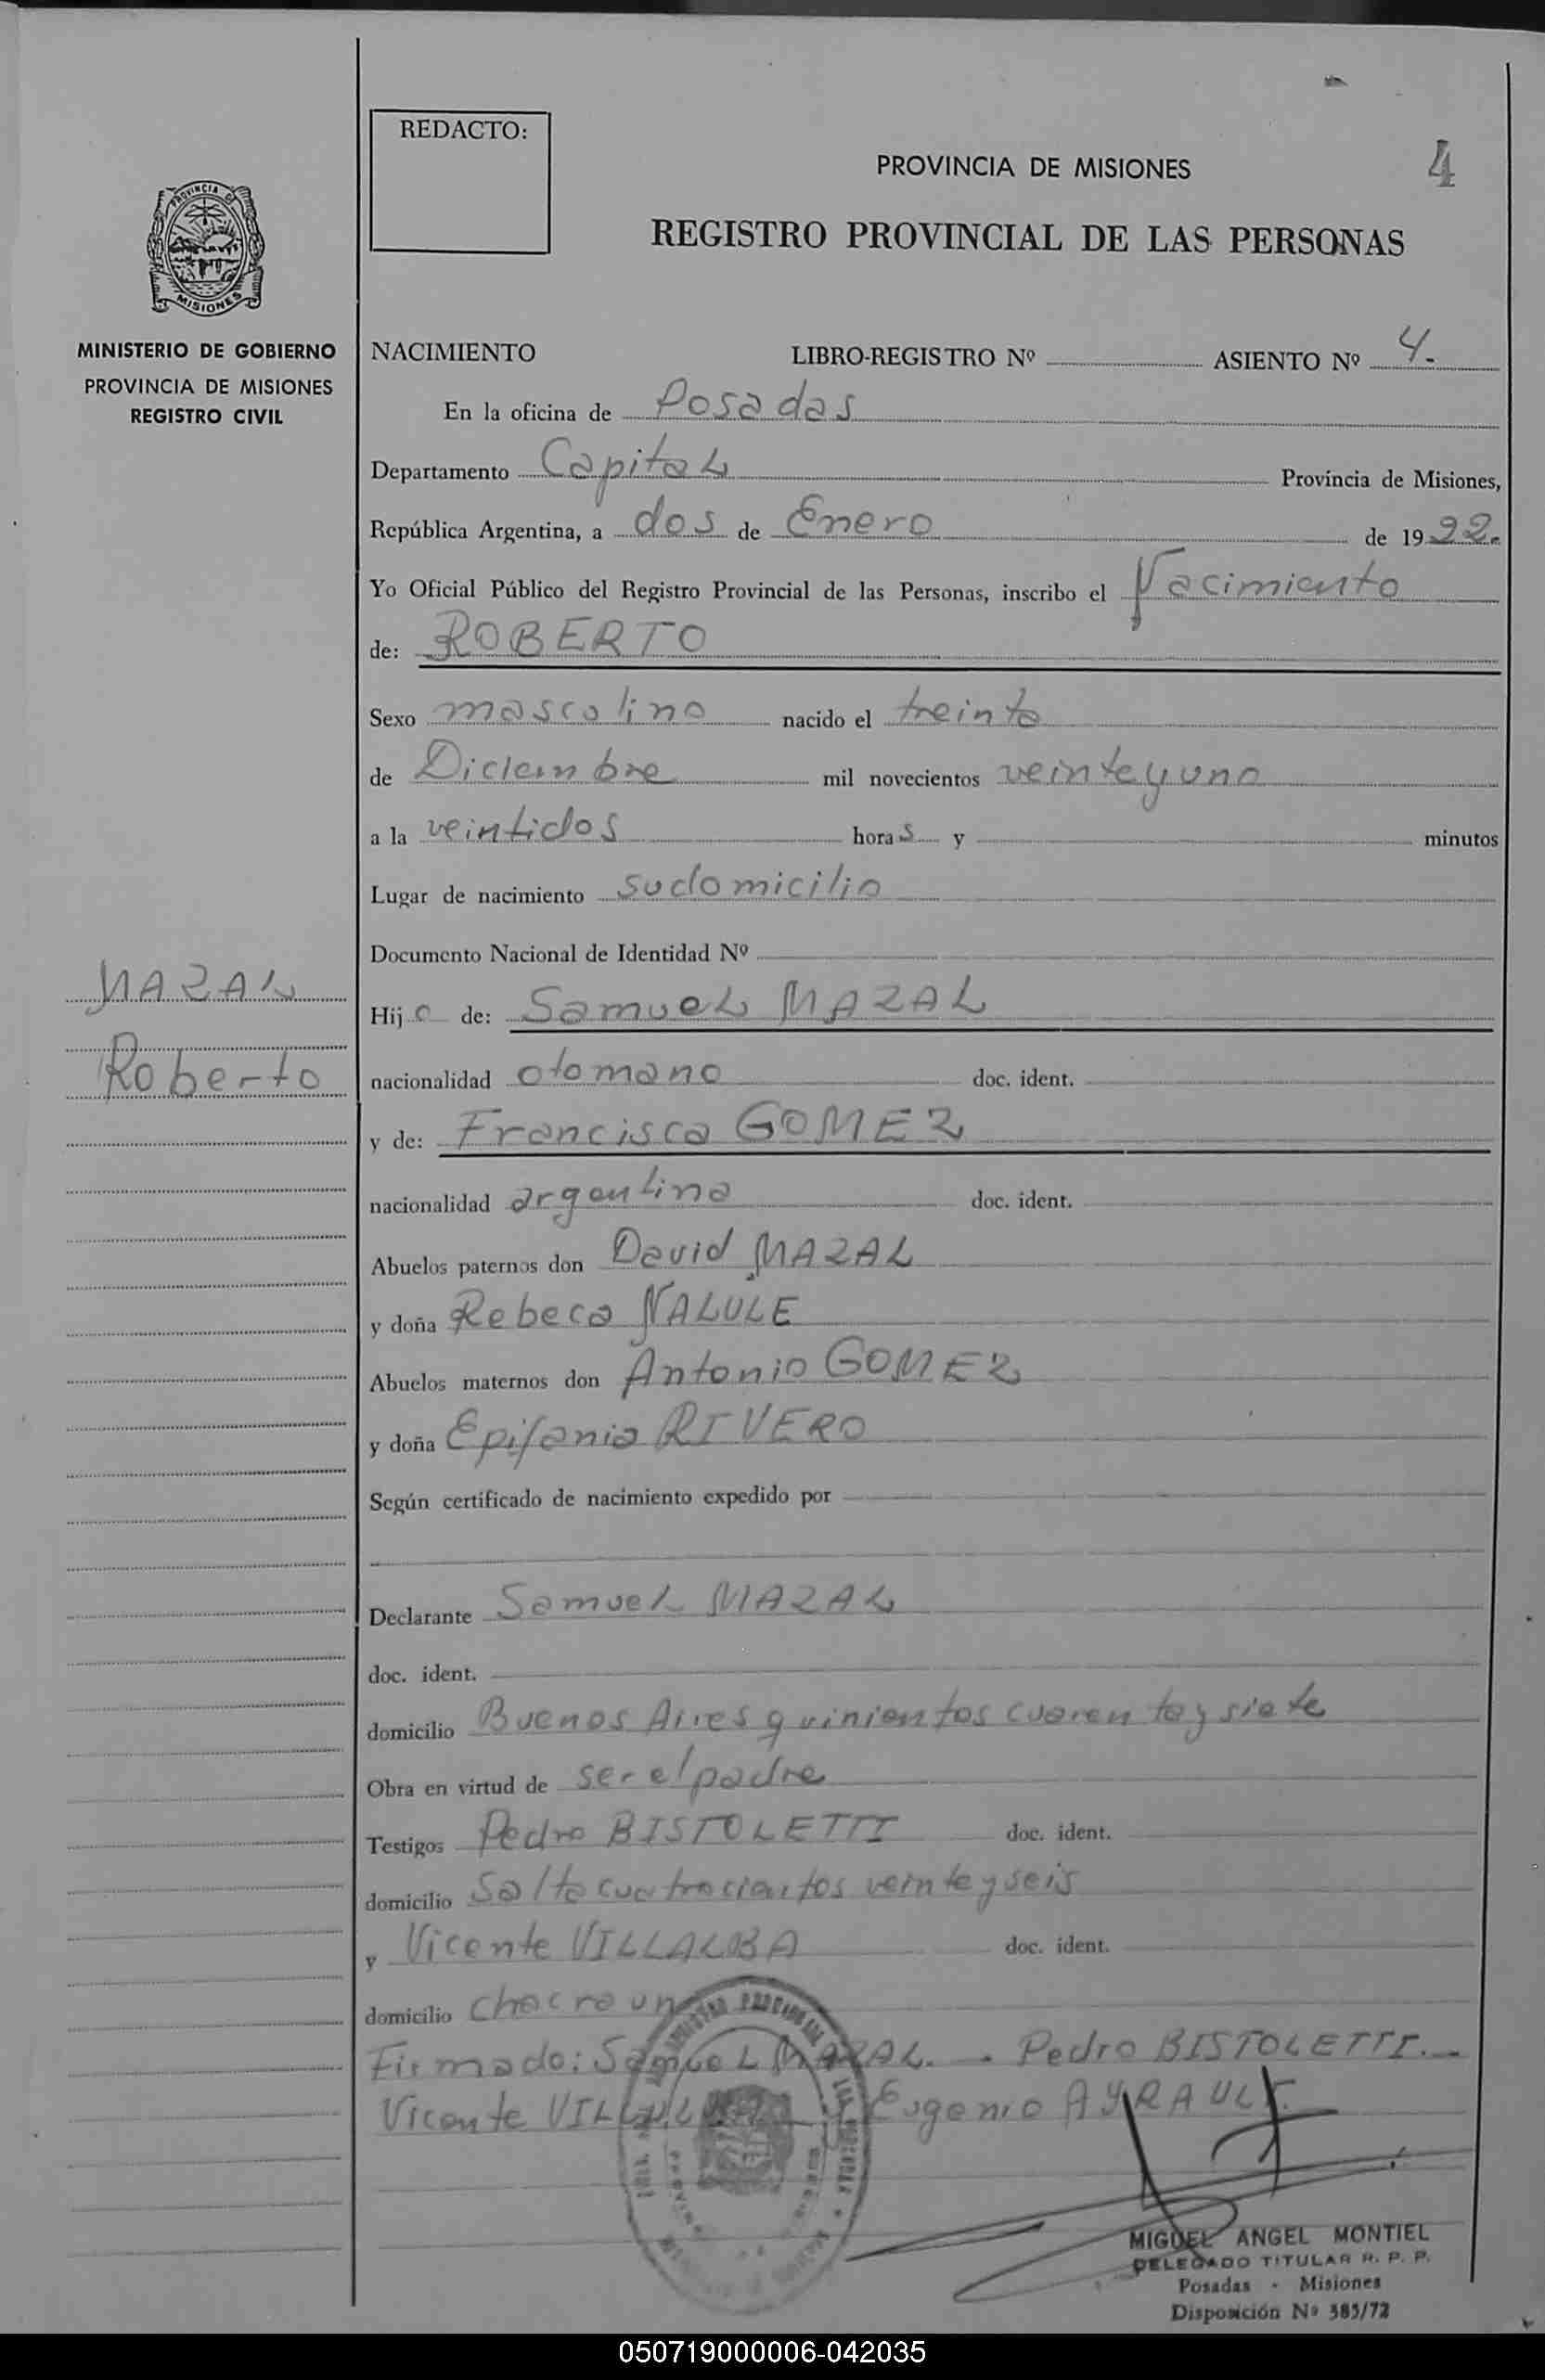 REDACTO:
PROVINCIA DE MISIONES
4
REGISTRO PROVINCIAL DE LAS PERSONAS
PROVINCIA DE
MISIONES
MINISTERIO DE GOBIERNO
PROVINCIA DE MISIONES
REGISTRO CIVIL
NACIMIENTO LIBRO-REGISTRO Nº ASIENTO Nº 4.
En la oficina de Posadas
Departamento Capital Provincia de Misiones,
República Argentina, a dos de Enero de 1922.
Yo Oficial Público del Registro Provincial de las Personas, inscribo el Nacimiento
de: ROBERTO
Sexo mascolino nacido el treinta
de Diciembre mil novecientos veinteyuno
a la veintidos horas y minutos
Lugar de nacimiento sudomicilio
Documento Nacional de Identidad Nº
MAZAL
Roberto
Hijo de: Samuel MAZAL
nacionalidad otomano doc. ident.
y de: Francisca GOMEZ
nacionalidad argentina doc. ident.
Abuelos paternos don David MAZAL
y doña Rebeca NALULE
Abuelos maternos don Antonio GOMEZ
y doña Epifania RIVERO
Según certificado de nacimiento expedido por
Declarante Samuel MAZAL
doc. ident.
domicilio Buenos Aires quinientos cuarentay siete
Obra en virtud de ser el padre
Testigos Pedro BISTOLETTI doc. ident.
domicilio Salta cuatrocientos veinteyseis
y Vicente VILLALBA doc. ident.
domicilio chacra un
Firmado: Samuel MAZAL. - Pedro BISTOLETTI.-
Vicente VILLALBA Eugenio AYRAULT.
MIGUEL ANGEL MONTIEL
DELEGADO TITULAR R. P. P.
Posadas - Misiones
Disposición Nº 385/72
050719000006-042035